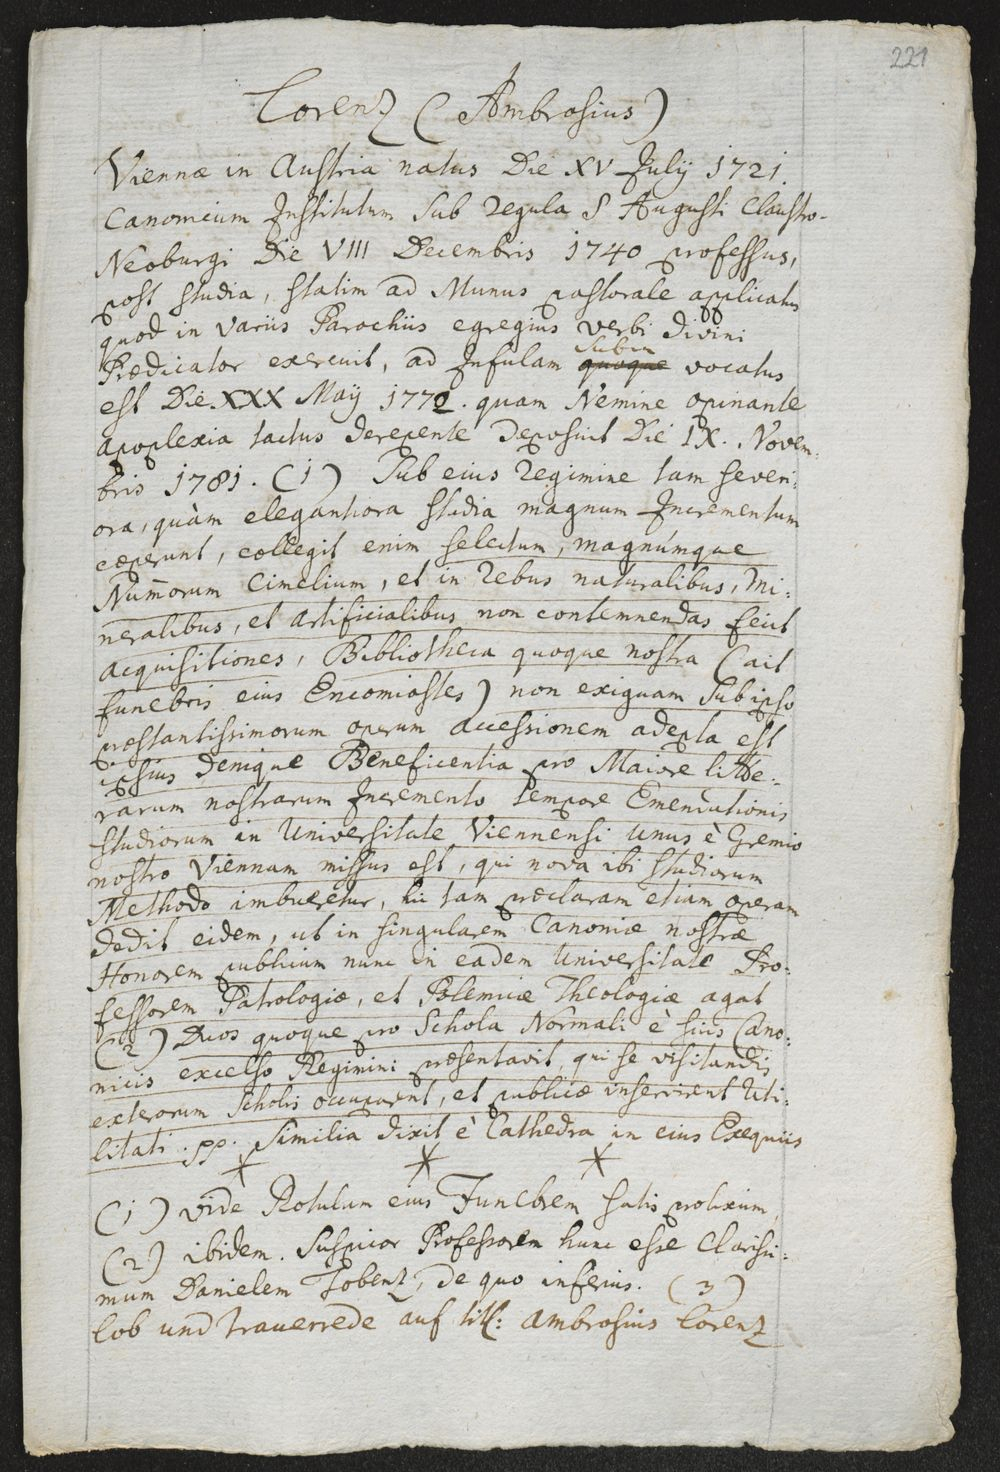 221
Lorenz (Ambrosius)
Viennæ in Austria natus Die XV Julÿ 1721.
Canonicum Institutum sub regula S Augusti Claustro-
Neoburgi Die VIII Decembris 1740 professus,
post studia, statim ad Munus pastorale applicatus
quod in variis Parochiis egregius verbi divini
Prædicator exercuit, ad Infulam quoque subin vocatus
est Die XXX Maÿ 1772. quam Nemine opinante
apoplexia tactus derepente deposuit Die IX. Novem-
bris 1781. (1) Sub eius regimine tam severi-
ora, quàm elegantiora studia magnum Incrementum
cæperunt, collegit enim selectum, magnúmque
Num̄orum Cimelium, et in rebus naturalibus, mi-
neralibus, et artificialibus non contemnendas fecit
acquisitiones, Bibliotheca quoque nostra (ait
funebris eius Encomiastes) non exiguam sub ipso
præstantissimorum operum accessionem adepta est
ipsius denique Beneficentia pro Maiore litte-
rarum nostrarum Incremento tempore Emendationis
studiorum in Universitate Viennensi unus è Gremio
nostro Viennam missus est, qui nova ibi studiorum
Methodo imbueretur, hic tam præclaram etiam operam
dedit eidem, ut in singularem Canoniæ nostræ
Honorem publicum nunc in eadem Universitate Pro-
fessorem Patrologiæ, et Polemicæ Theologiæ agat
(2) Duos quoque pro Schola Normali è suis Cano-
nicis excelso Regimini præsentavit, qui se visitandis
exterorum Scholis occuparent, et publicæ inservirent Uti-
litati. pp. Similia dixit è Cathedra in eius Exequiis
(1) vide Rotulum eius Funebrem satis prolixum,
(2) ibidem. Suspicor Professorem hunc esse Clarissi-
mum Danielem Tobenz, de quo inferius. (3)
Lob und Trauerrede auf titl: Ambrosius Lorenz